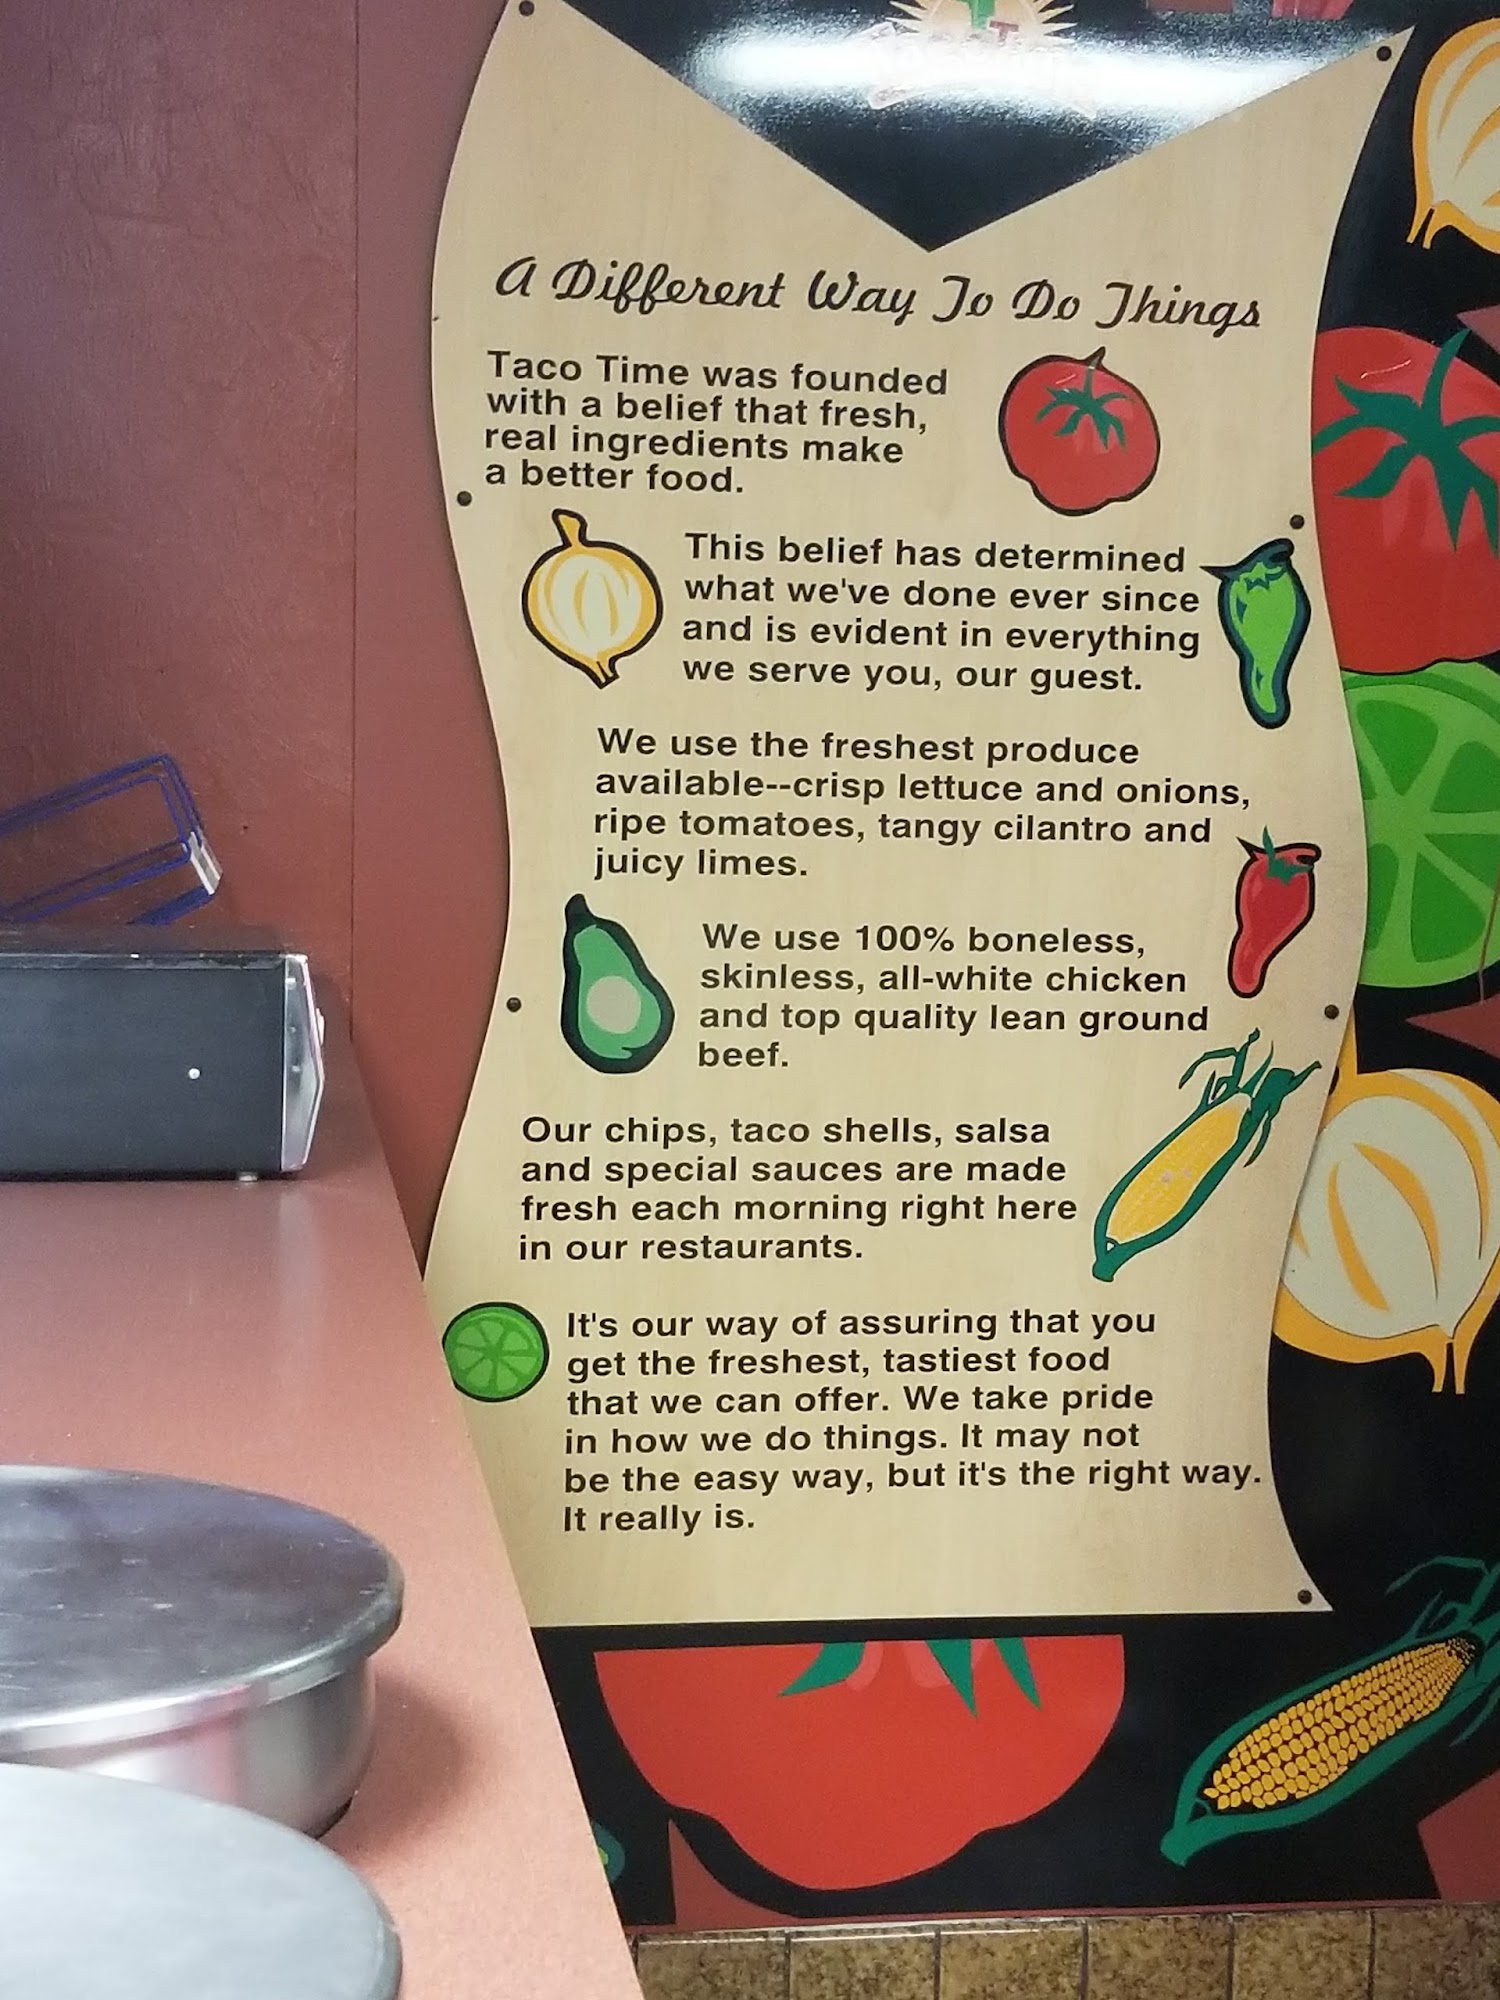 A Different Way To Do Things
Taco Time was founded
with a belief that fresh,
real ingredients make
a better food.
This belief has determined
what we've done ever since
and is evident in everything
we serve you, our guest.
We use the freshest produce
available--crisp lettuce and onions,
ripe tomatoes, tangy cilantro and
juicy limes.
We use 100% boneless,
skinless, all-white chicken
and top quality lean ground
beef.
Our chips, taco shells, salsa
and special sauces are made
fresh each morning right here
in our restaurants.
It's our way of assuring that you
get the freshest, tastiest food
that we can offer. We take pride
in how we do things. It may not
be the easy way, but it's the right way.
It really is.